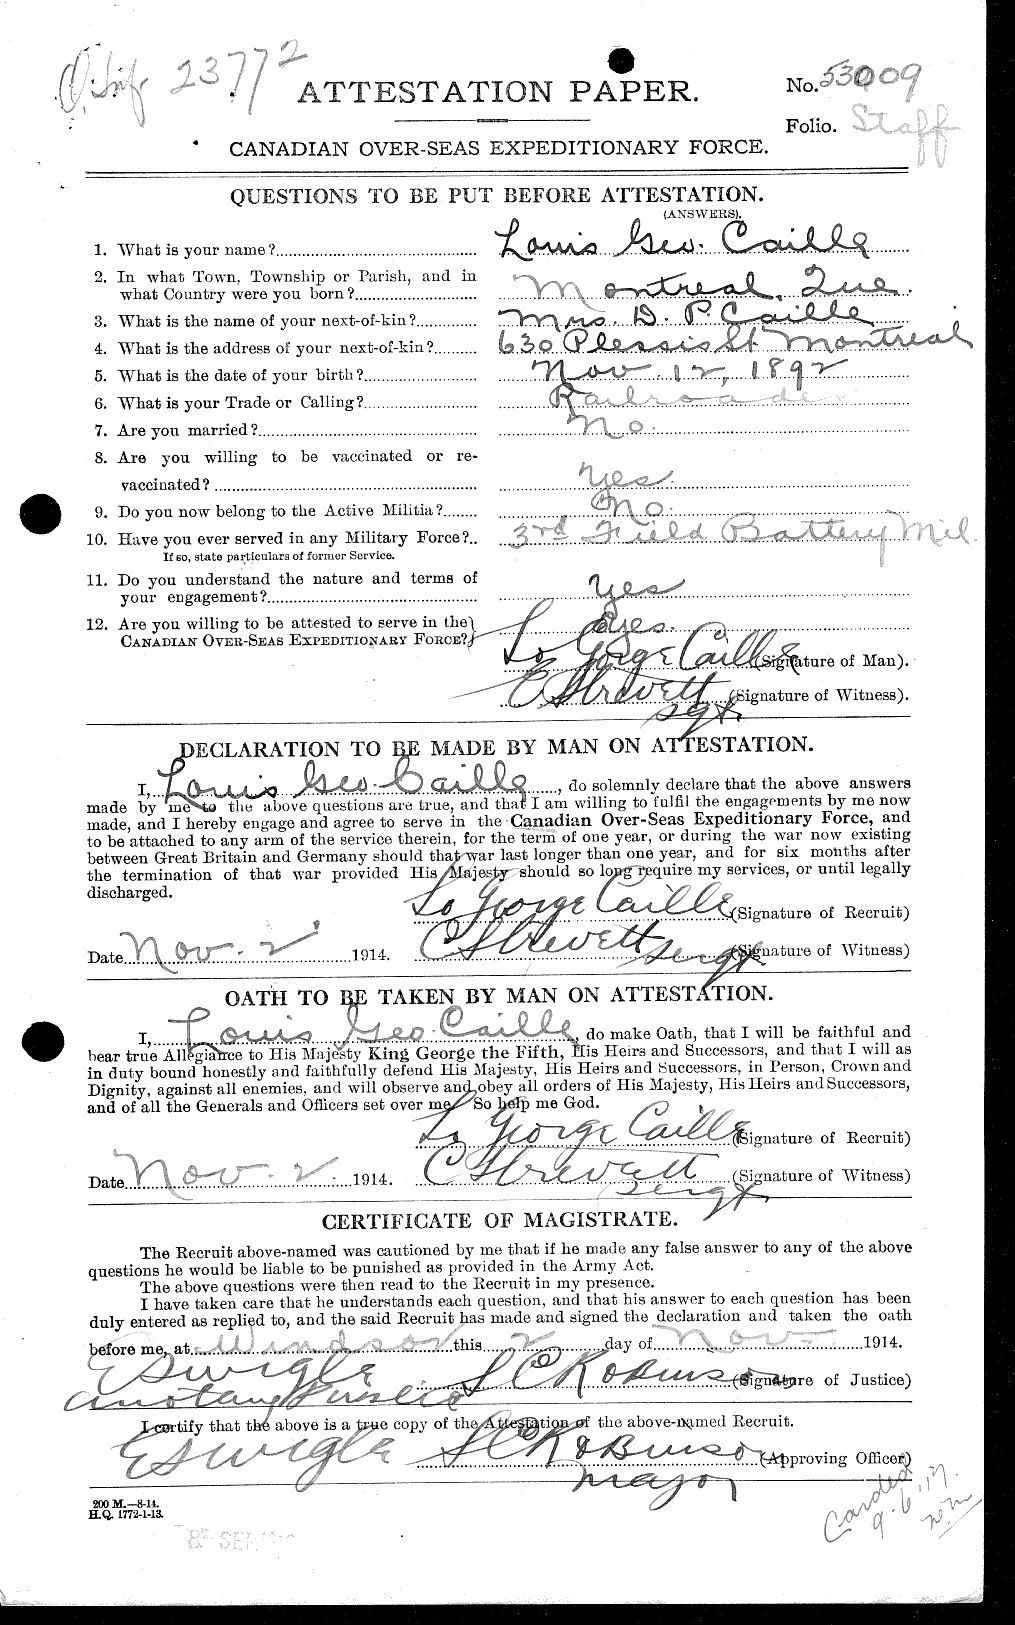 23772
ATTESTATION PAPER.
No. 53009
Folio. Staff
CANADIAN OVER-SEAS EXPEDITIONARY FORCE.
QUESTIONS TO BE PUT BEFORE ATTESTATION.
(ANSWERS).
1. What is your name? Louis Geo. Caille
2. In what Town, Township or Parish, and in
what Country were you born? Montreal, Que.
3. What is the name of your next-of-kin? Mrs. D. P. Caille
4. What is the address of your next-of-kin? 630 Plessis St. Montreal
5. What is the date of your birth? Nov. 12, 1892
6. What is your Trade or Calling? Railroader
7. Are you married? No.
8. Are you willing to be vaccinated or re-
vaccinated? Yes.
9. Do you now belong to the Active Militia? No.
10. Have you ever served in any Military Force?.. 3rd Field Battery Mil.
If so, state particulars of former Service.
11. Do you understand the nature and terms of
your engagement? Yes
12. Are you willing to be attested to serve in the
CANADIAN OVER-SEAS EXPEDITIONARY FORCE? Yes.
Ls George Caille (Signature of Man).
C Strevett Sgt. (Signature of Witness).
DECLARATION TO BE MADE BY MAN ON ATTESTATION.
I, Louis Geo. Caille, do solemnly declare that the above answers
made by me to the above questions are true, and that I am willing to fulfil the engagements by me now
made, and I hereby engage and agree to serve in the Canadian Over-Seas Expeditionary Force, and
to be attached to any arm of the service therein, for the term of one year, or during the war now existing
between Great Britain and Germany should that war last longer than one year, and for six months after
the termination of that war provided His Majesty should so long require my services, or until legally
discharged.
Ls George Caille (Signature of Recruit)
Date Nov. 2 1914. C Strevett Sergt (Signature of Witness)
OATH TO BE TAKEN BY MAN ON ATTESTATION.
I, Louis Geo. Caille, do make Oath, that I will be faithful and
bear true Allegiance to His Majesty King George the Fifth, His Heirs and Successors, and that I will as
in duty bound honestly and faithfully defend His Majesty, His Heirs and Successors, in Person, Crown and
Dignity, against all enemies, and will observe and obey all orders of His Majesty, His Heirs and Successors,
and of all the Generals and Officers set over me. So help me God.
Ls George Caille (Signature of Recruit)
Date Nov. 2. 1914. C Strevett Sergt (Signature of Witness)
CERTIFICATE OF MAGISTRATE.
The Recruit above-named was cautioned by me that if he made any false answer to any of the above
questions he would be liable to be punished as provided in the Army Act.
The above questions were then read to the Recruit in my presence.
I have taken care that he understands each question, and that his answer to each question has been
duly entered as replied to, and the said Recruit has made and signed the declaration and taken the oath
before me, at Windsor this 2 day of Nov 1914.
E S Wigle S C Robinson (Signature of Justice)
a notary Public
I certify that the above is a true copy of the Attestation of the above-named Recruit.
E S Wigle S C Robinson (Approving Officer)
Major
200 M.—8-14.
H.Q. 1772-1-13.
Carded
9.6.17.